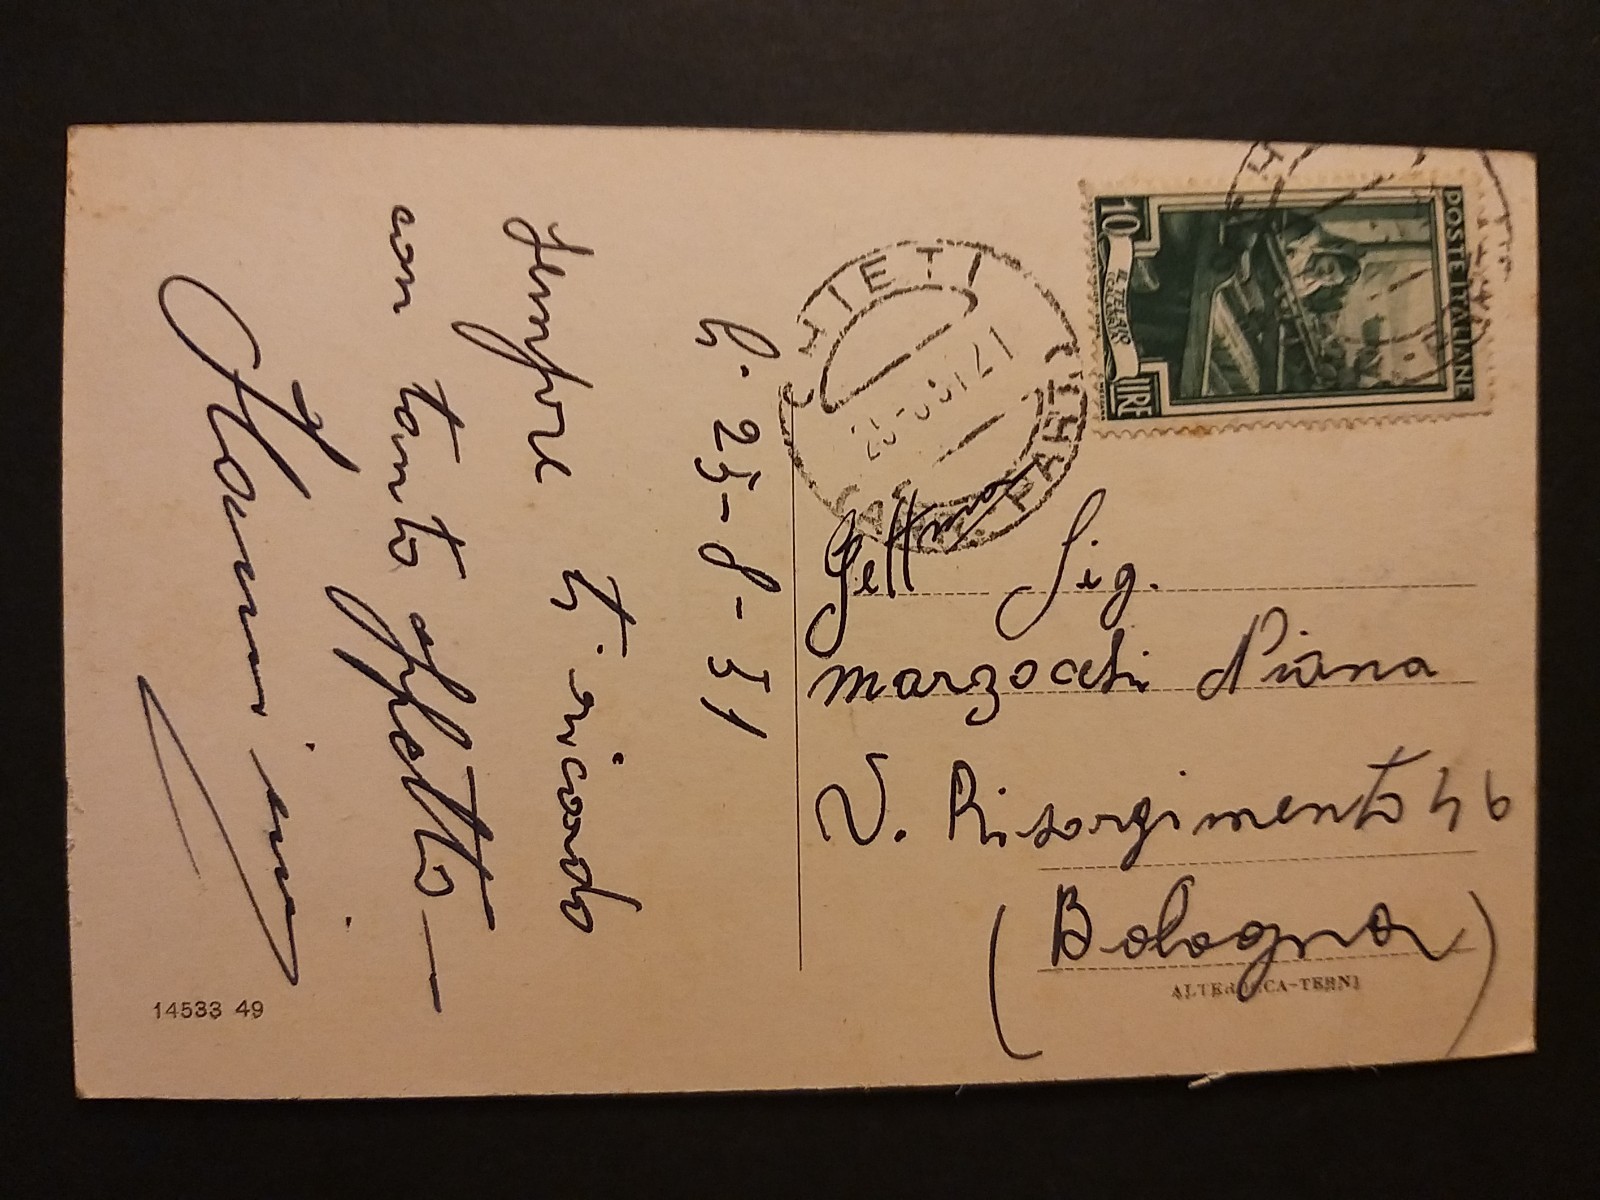 lì. 25-8-51
Sempre ti ricordo
con tanto affetto-
POSTE ITALIANE
10
LIRE
IL TELAIO
CHIETI
Gent.ma Sig.
Marzocchi Diana
V. Risorgimento 46
(Bologna)
ALTEROCCA-TERNI
14533 49